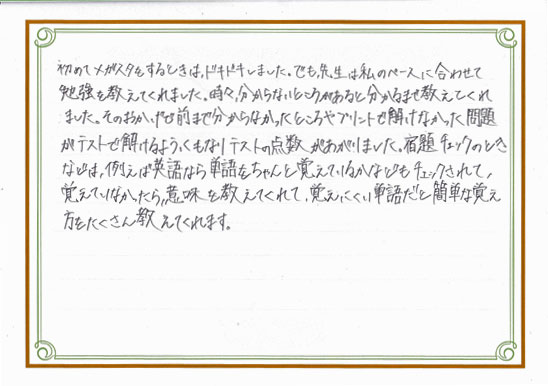 初めてメガスタをするときは、ドキドキしました。でも、先生は私のペースに合わせて
勉強を教えてくれました。時々、分からないところがあると分かるまで教えてくれ
ました。そのおかげで前まで分からなかったところやプリントで解けなかった問題
がテストで解けるようにもなりテストの点数があがりました。宿題チェックのとき
などは、例えば英語なら単語をちゃんと覚えているかなどもチェックされて、
覚えていなかったら、意味を教えてくれて、覚えにくい単語だと簡単な覚え
方をたくさん教えてくれます。